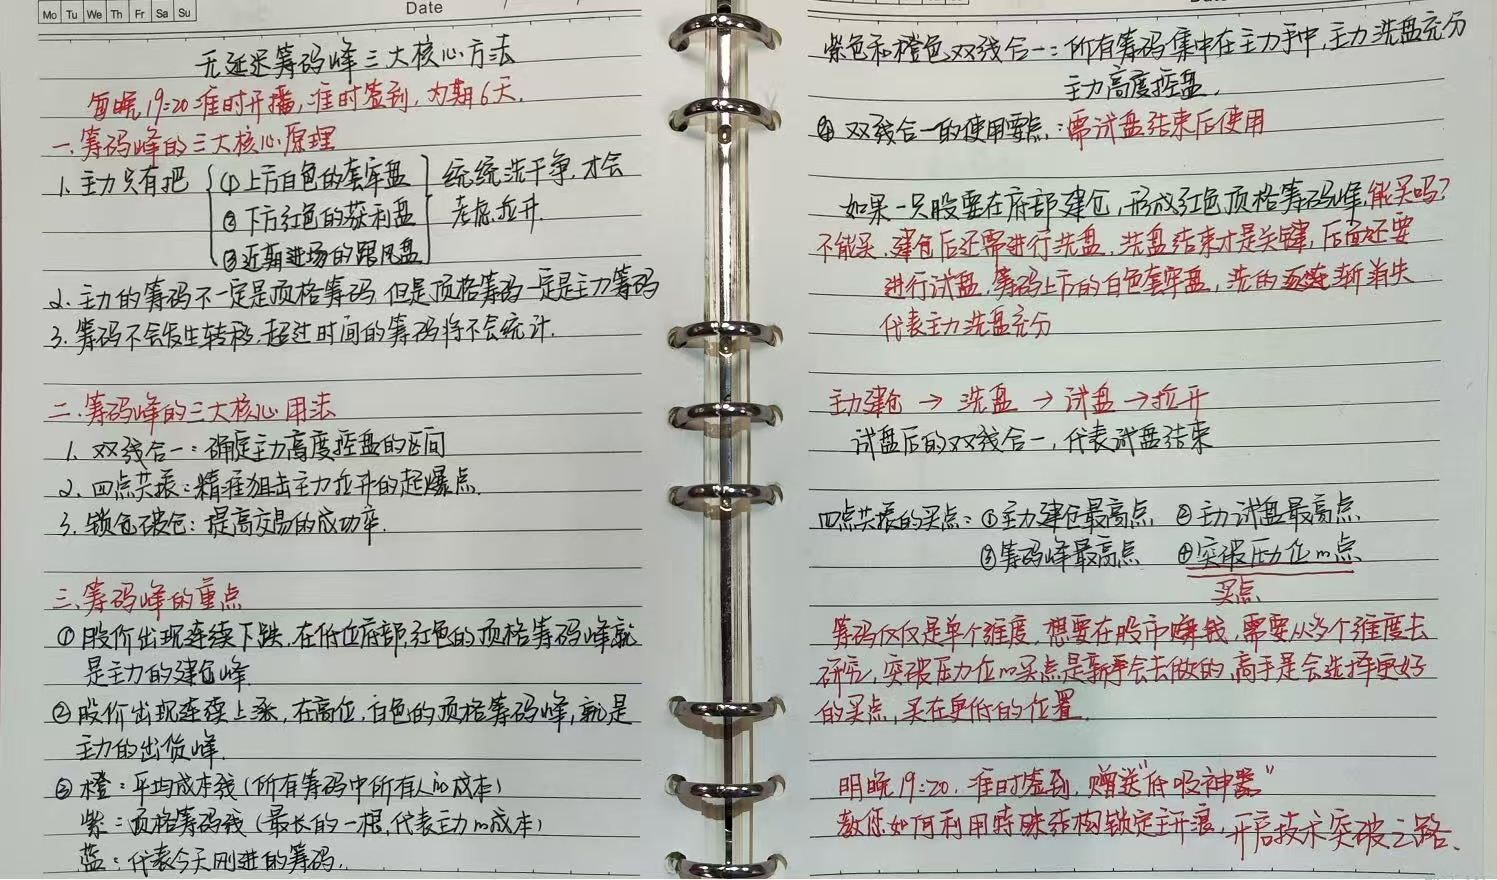 Mo Tu We Th Fr Sa Su
Date
无延迟筹码峰三大核心方法
每晚19:20准时开播,准时签到,为期6天.
一.筹码峰的三大核心原理
1. 主力只有把 ①上方白色的套牢盘 统统洗干净,才会
②下方红色的获利盘 考虑拉升.
③近期进场的跟风盘
2. 主力的筹码不一定是顶格筹码,但是顶格筹码一定是主力筹码
3. 筹码不会发生转移,超过时间的筹码将不会统计.
二.筹码峰的三大核心用法
1. 双线合一:确定主力高度控盘的区间
2. 四点共振:精准狙击主力拉升的起爆点.
3. 锁仓破仓:提高交易的成功率.
三.筹码峰的重点
①股价出现连续下跌,在低位底部,红色的顶格筹码峰就
是主力的建仓峰.
②股价出现连续上涨,在高位,白色的顶格筹码峰,就是
主力的出货峰.
③橙:平均成本线(所有筹码中所有人的成本)
紫:顶格筹码线(最长的一根,代表主力的成本)
蓝:代表今天刚进的筹码.
紫色和橙色双线合一:所有筹码集中在主力手中,主力洗盘充分
主力高度控盘.
④双线合一的使用要点:需试盘结束后使用
如果一只股票在底部建仓,形成红色顶格筹码峰,能买吗?
不能买,建仓后还需进行洗盘,洗盘结束才是关键,后面还要
进行试盘,筹码上方的白色套牢盘,洗的逐渐消失
代表主力洗盘充分
主力建仓→洗盘→试盘→拉升
试盘后的双线合一,代表试盘结束
四点共振的买点:①主力建仓最高点 ②主力试盘最高点
③筹码峰最高点 ④突破压力位的点
买点
筹码仅仅是单个维度,想要在股市赚钱,需要从多个维度去
研究,突破压力位的买点是新手会去做的,高手是会选择更好
的买点,买在更低的位置.
明晚19:20,准时签到,赠送"低吸神器"
教您如何利用特殊结构锁定主升浪,开启技术突破之路.